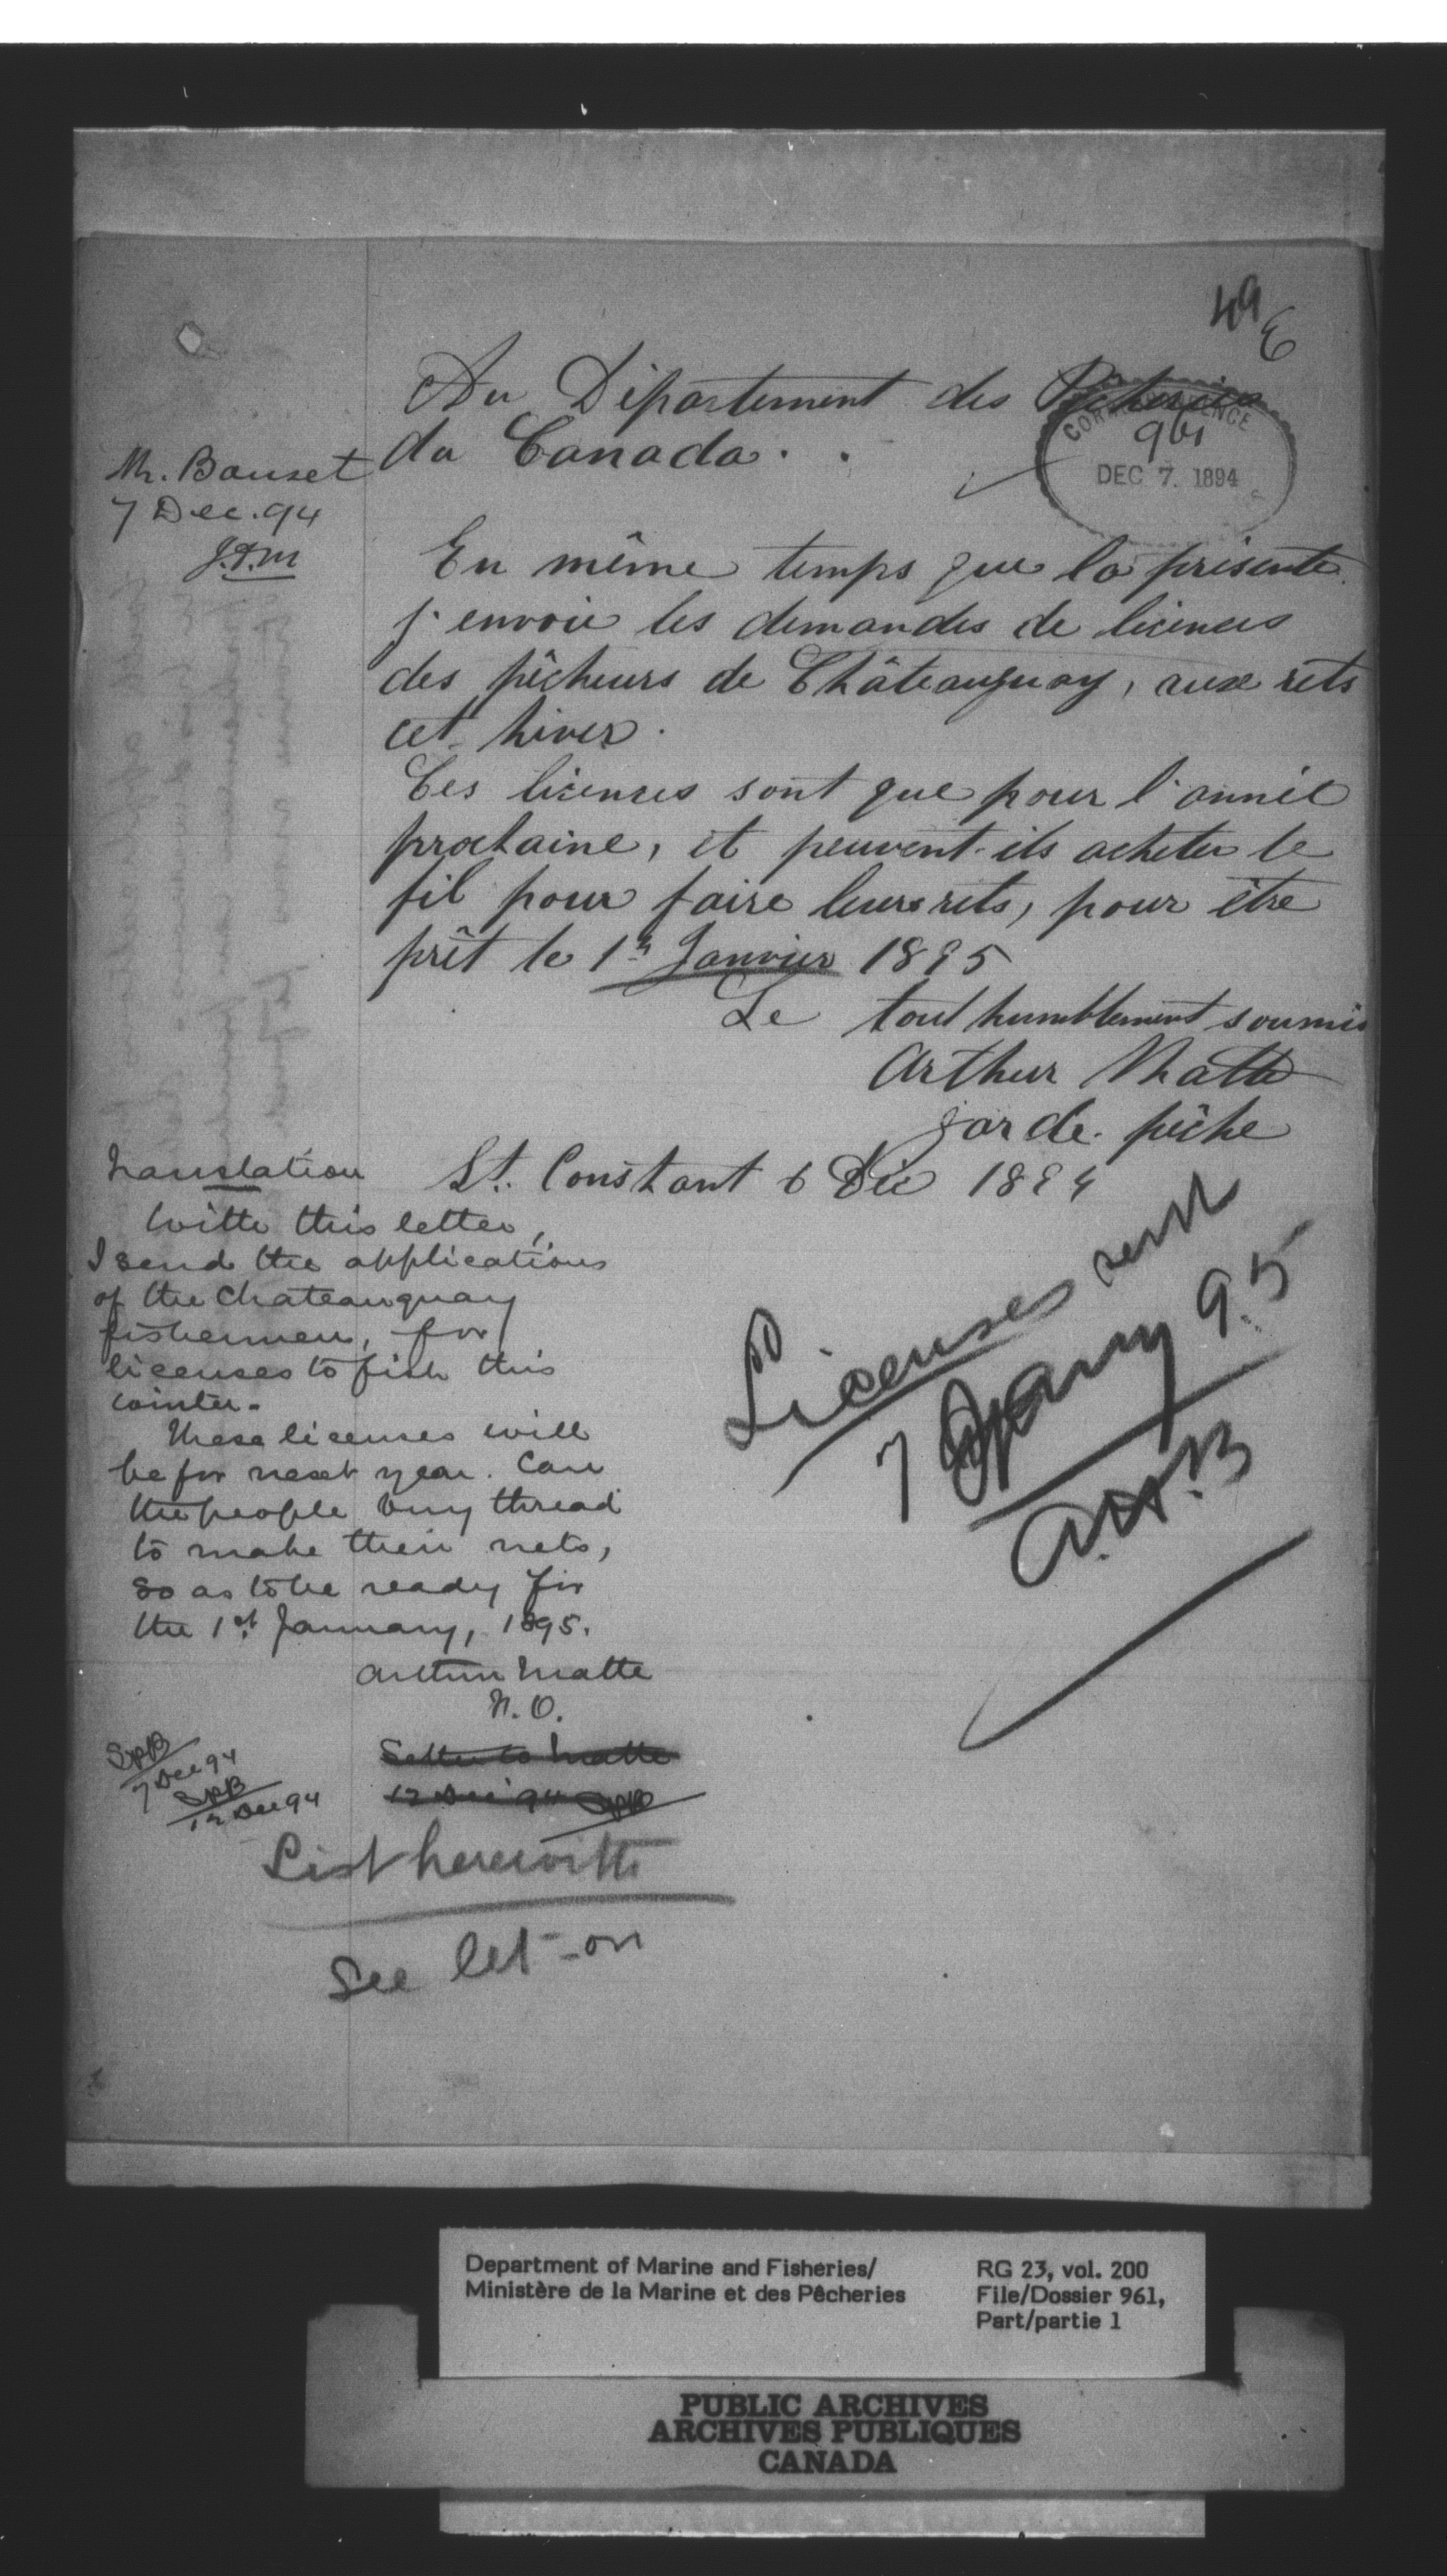 49
E
Au Département des Pêcheries
du Canada.
CORRESPONDENCE
961
DEC 7. 1894
Mr. Bauset
7 Dec. 94
En même temps que la présente
j'envoie les demandes de licences
des pêcheurs de Châteauguay, aux rets
cet hiver.
Ces licences sont que pour l'année
prochaine, et peuvent-ils acheter le
fil pour faire leurs rets, pour être
prêt le 1er Janvier 1895
Le tout humblement soumis
Arthur Matte
garde pêche
St. Constant 6 Déc 1894
Translation
With this letter,
I send the applications
of the Chateauguay
fishermen, for
licenses to fish this
winter.
These licenses will
be for next year. Can
the people buy thread
to make their nets,
so as to be ready for
the 1st January, 1895.
Arthur Matte
Licenses sent
7 Jany 95
SPB
7 Dec 94
SPB
12 Dec 94
Letter to Matte
12 Dec 94 SPB
List herewith
See let-on
Department of Marine and Fisheries/
Ministère de la Marine et des Pêcheries
RG 23, vol. 200
File/Dossier 961,
Part/partie 1
PUBLIC ARCHIVES
ARCHIVES PUBLIQUES
CANADA